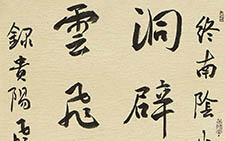 終南陰
洞辟
雲飛
錄貴陽